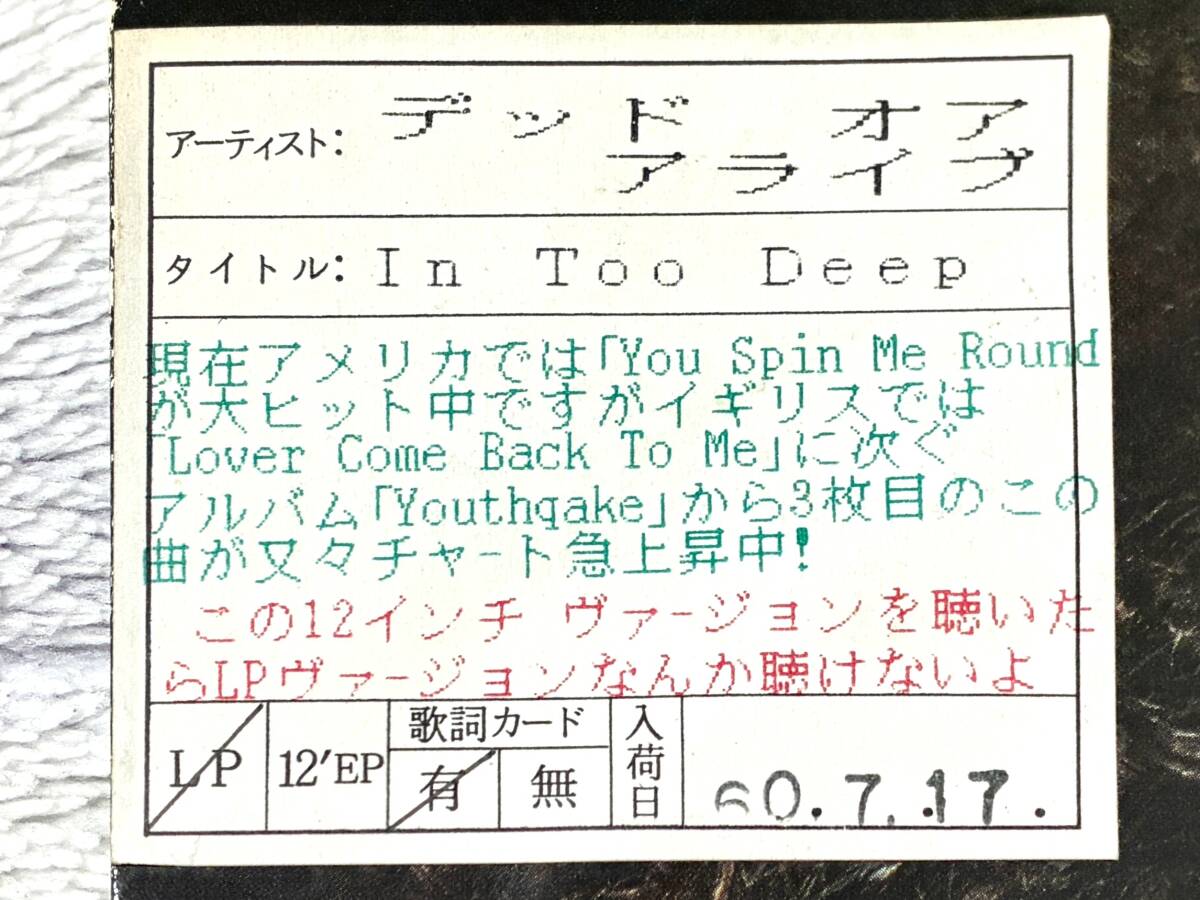 アーティスト: デッド オア
アライブ
タイトル: In Too Deep
現在アメリカでは「You Spin Me Round
が大ヒット中ですがイギリスでは
「Lover Come Back To Me」に次ぐ
アルバム「Youthqake」から3枚目のこの
曲が又々チャート急上昇中!
この12インチ ヴァージョンを聴いた
らLPヴァージョンなんか聴けないよ
LP 12'EP 歌詞カード 有 無 入荷日 60.7.17.